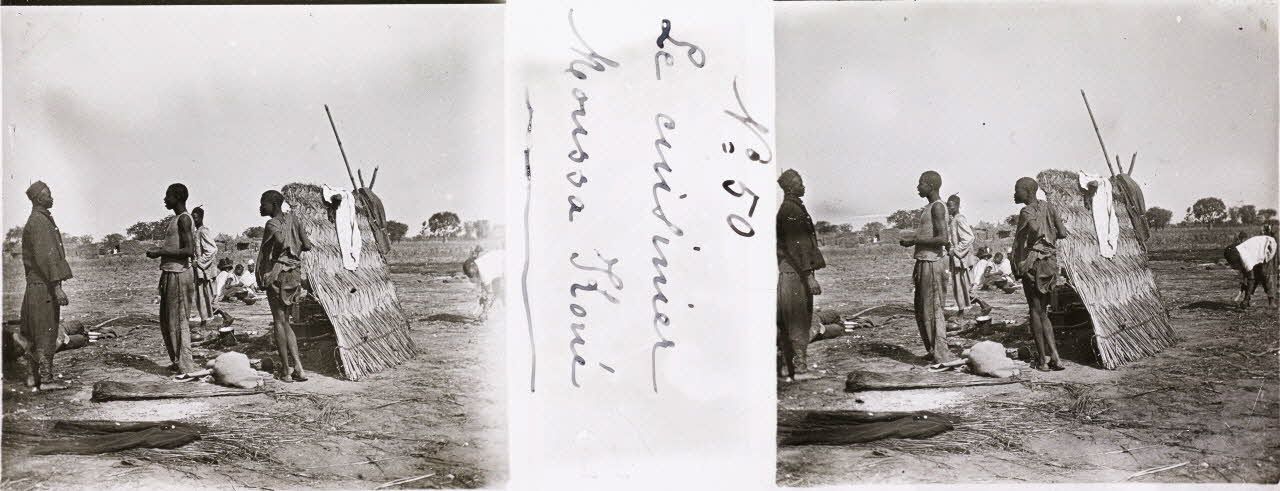 No 50
Le cuisinier
Moussa Koné